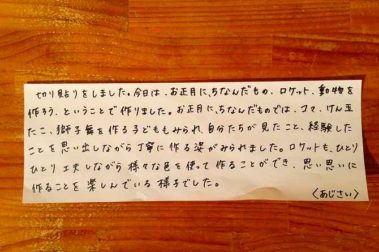 切り貼りをしました。今日は、お正月に、ちなんだもの、ロケット、動物を
作ろう、ということで作りました。お正月に、ちなんだものでは、コマ、けん玉
たこ、獅子舞を作る子どももみられ、自分たちが見たこと、経験した
ことを思い出しながら丁寧に作る姿がみられました。ロケットも、ひとり
ひとり工夫しながら様々な色を使って作ることができ、思い思いに
作ることを楽しんでいる様子でした。
〈あじさい〉